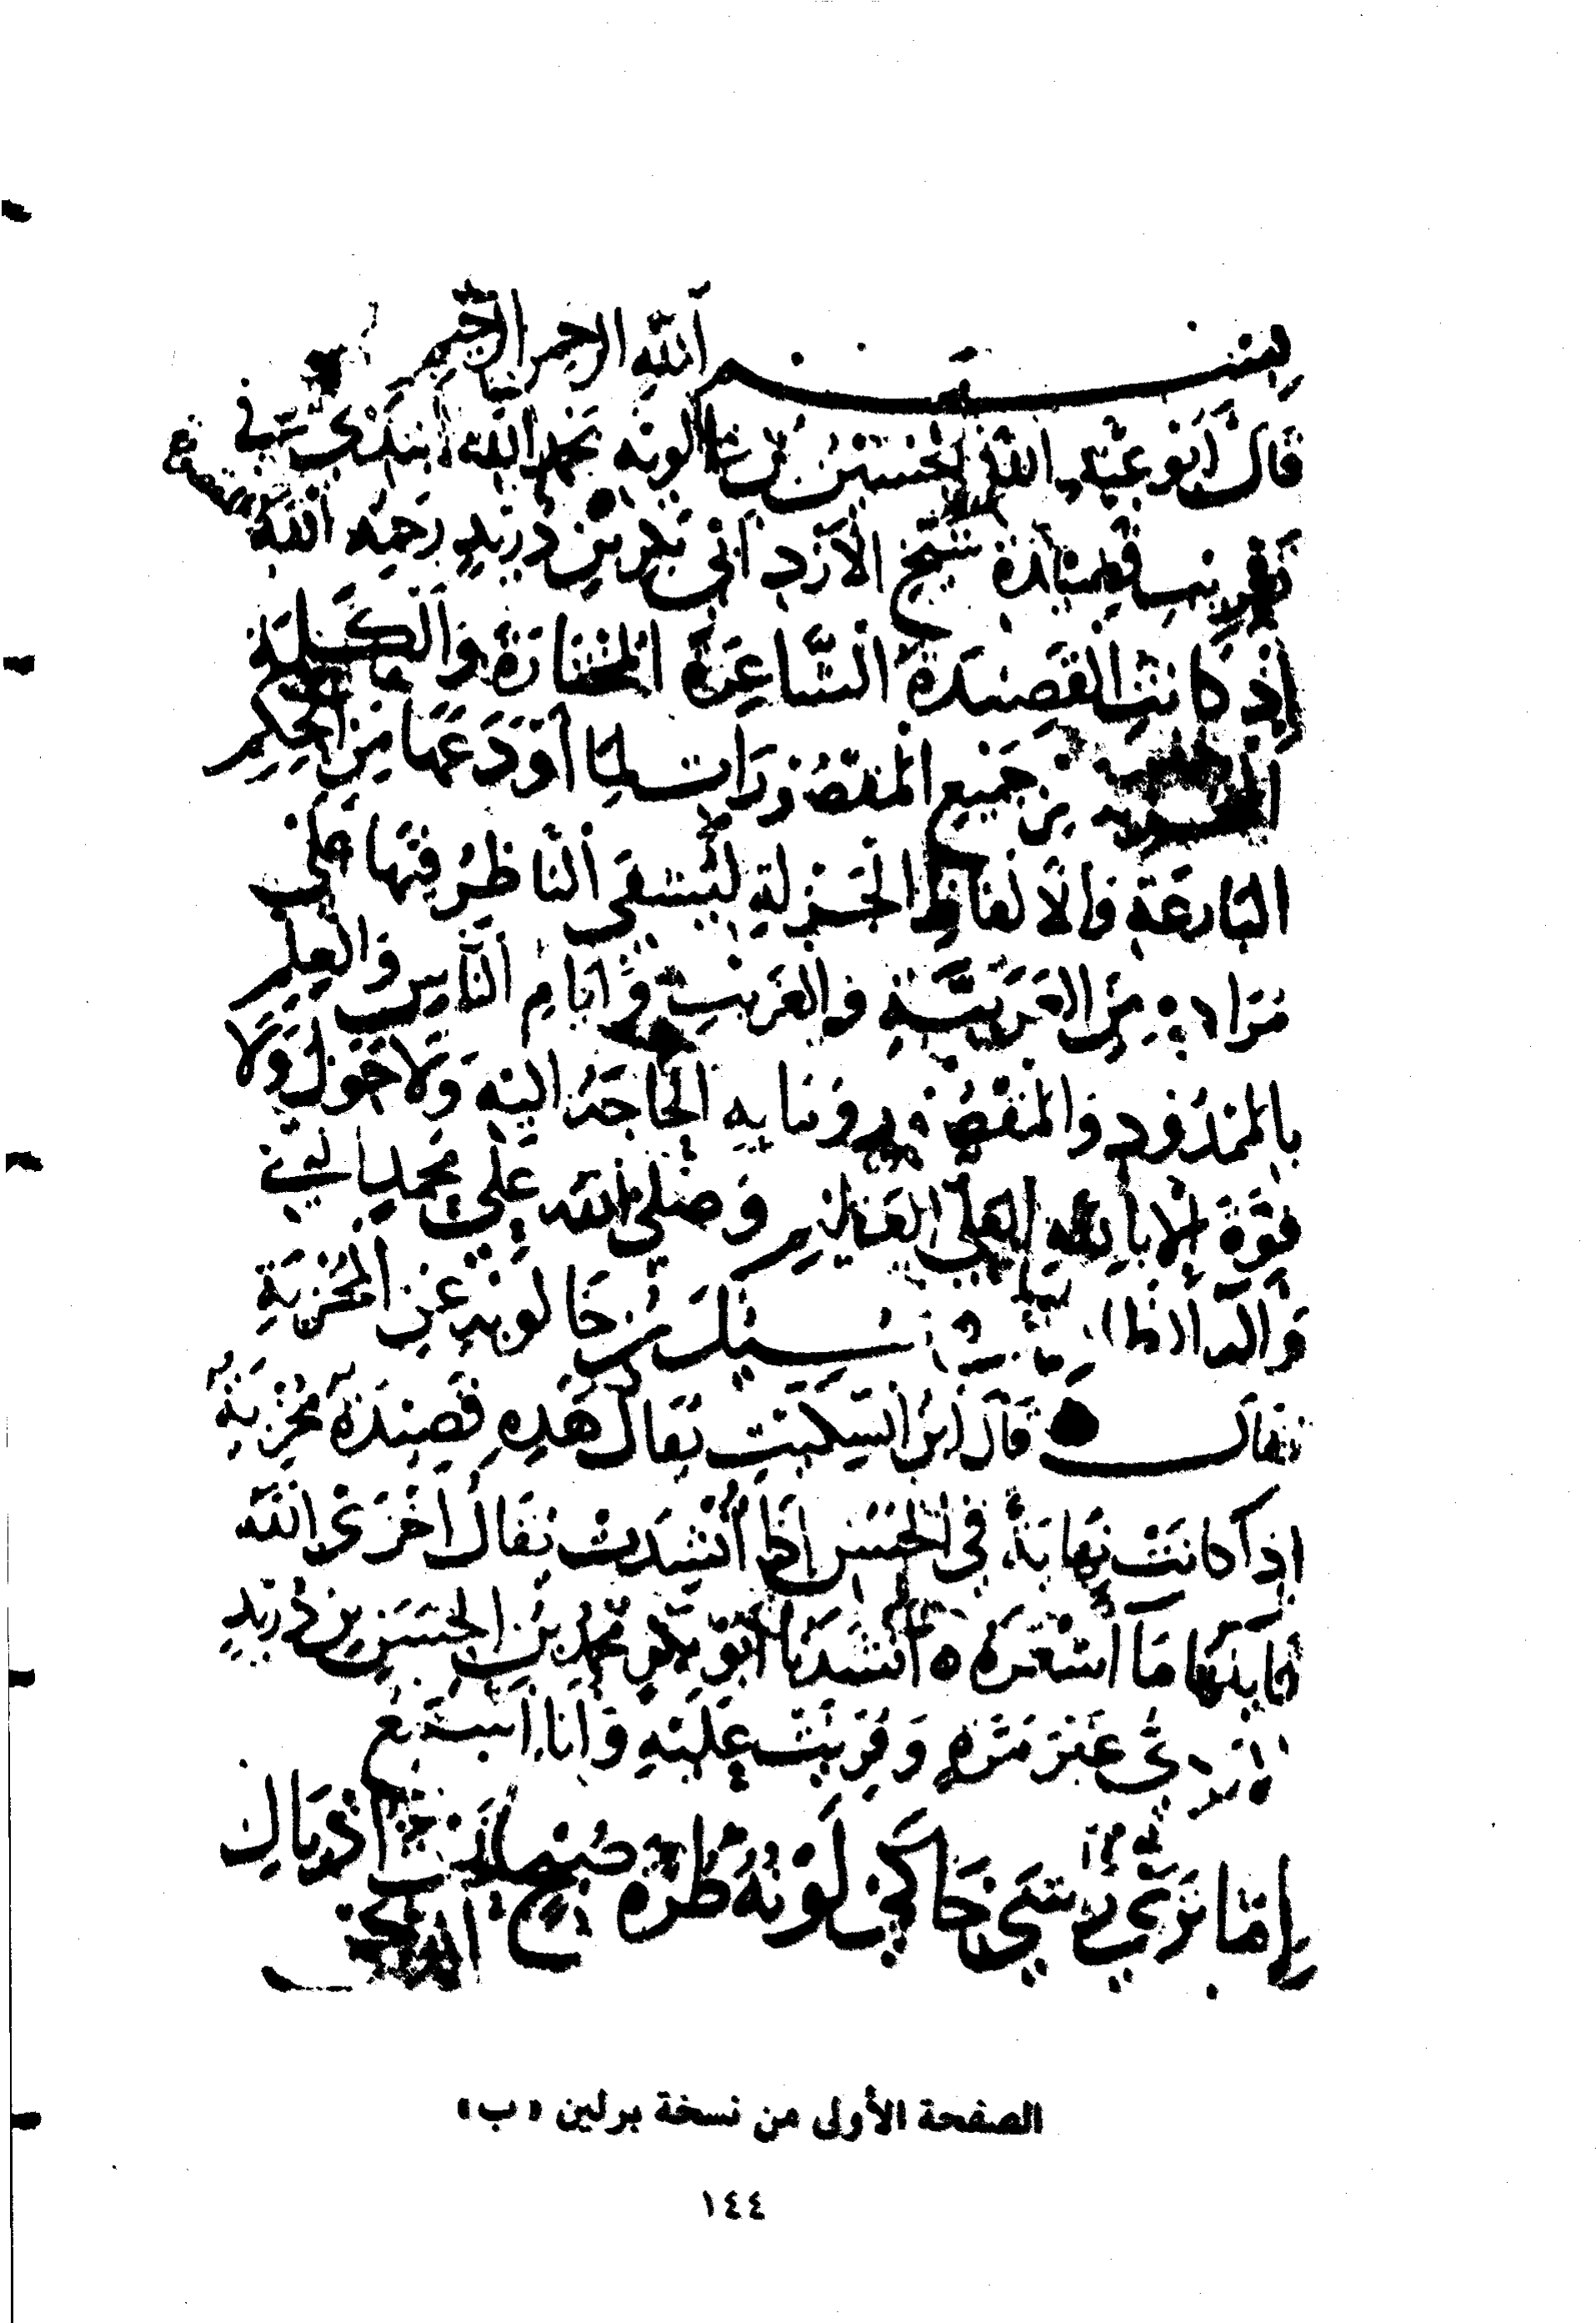 بسم الله الرحمن الرحيم
قال أبو عبد الله الحسين بن خالويه بحمد الله أبتدئ في
قصيدة شيخ الأزد أبي بكر بن دريد رحمه الله
إذ كانت القصيدة الشاعرة المختارة والكلمة
من جميع المقصورات لما أودعها من الحكم
البارعة والألفاظ الجزلة ليستقي الناظر فيها على
مراده من العربية والغريب وأيام الناس والعلم
بالممدود والمقصور وما به الحاجة إليه ولا حول ولا
قوة إلا بالله العلي العظيم وصلى الله على محمد النبي
وآله سئل ابن خالويه عن المخزية
فقال قال ابن السكيت يقال هذه قصيدة مخزية
إذا كانت نهاية في الحسن إذا أنشدت يقال أخزى الله
قايلها ما أشعره ٥ أنشدنا أبو بكر محمد بن الحسن بن دريد
الأزدي غير مرة وقريت عليه وأنا أسمع
إما تري رأسي حاكى لونه طرة صبح تحت أذيال
الدجى
الصفحة الأولى من نسخة برلين «ب»
١٤٤